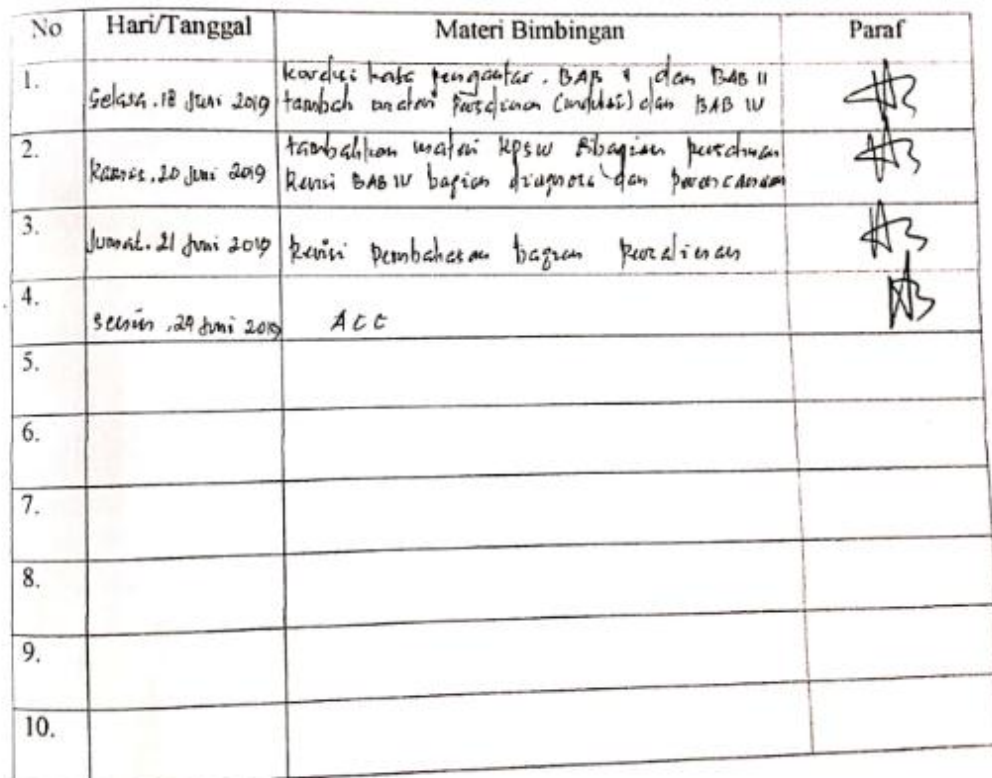 No Hari/Tanggal Materi Bimbingan Paraf
1. Selasa. 18 Juni 2019 kata pengantar. BAB I dan BAB II
tambah materi Persalinan (induksi) dan BAB IV
2. Kamis, 20 Juni 2019 tambahkan materi KPSW dibagian persalinan
Revisi BAB IV bagian diagnosa dan perencanaan
3. Jumat. 21 Juni 2019 Revisi Pembahasan bagian Persalinan
4. Senin, 24 Juni 2019 ACC
5.
6.
7.
8.
9.
10.